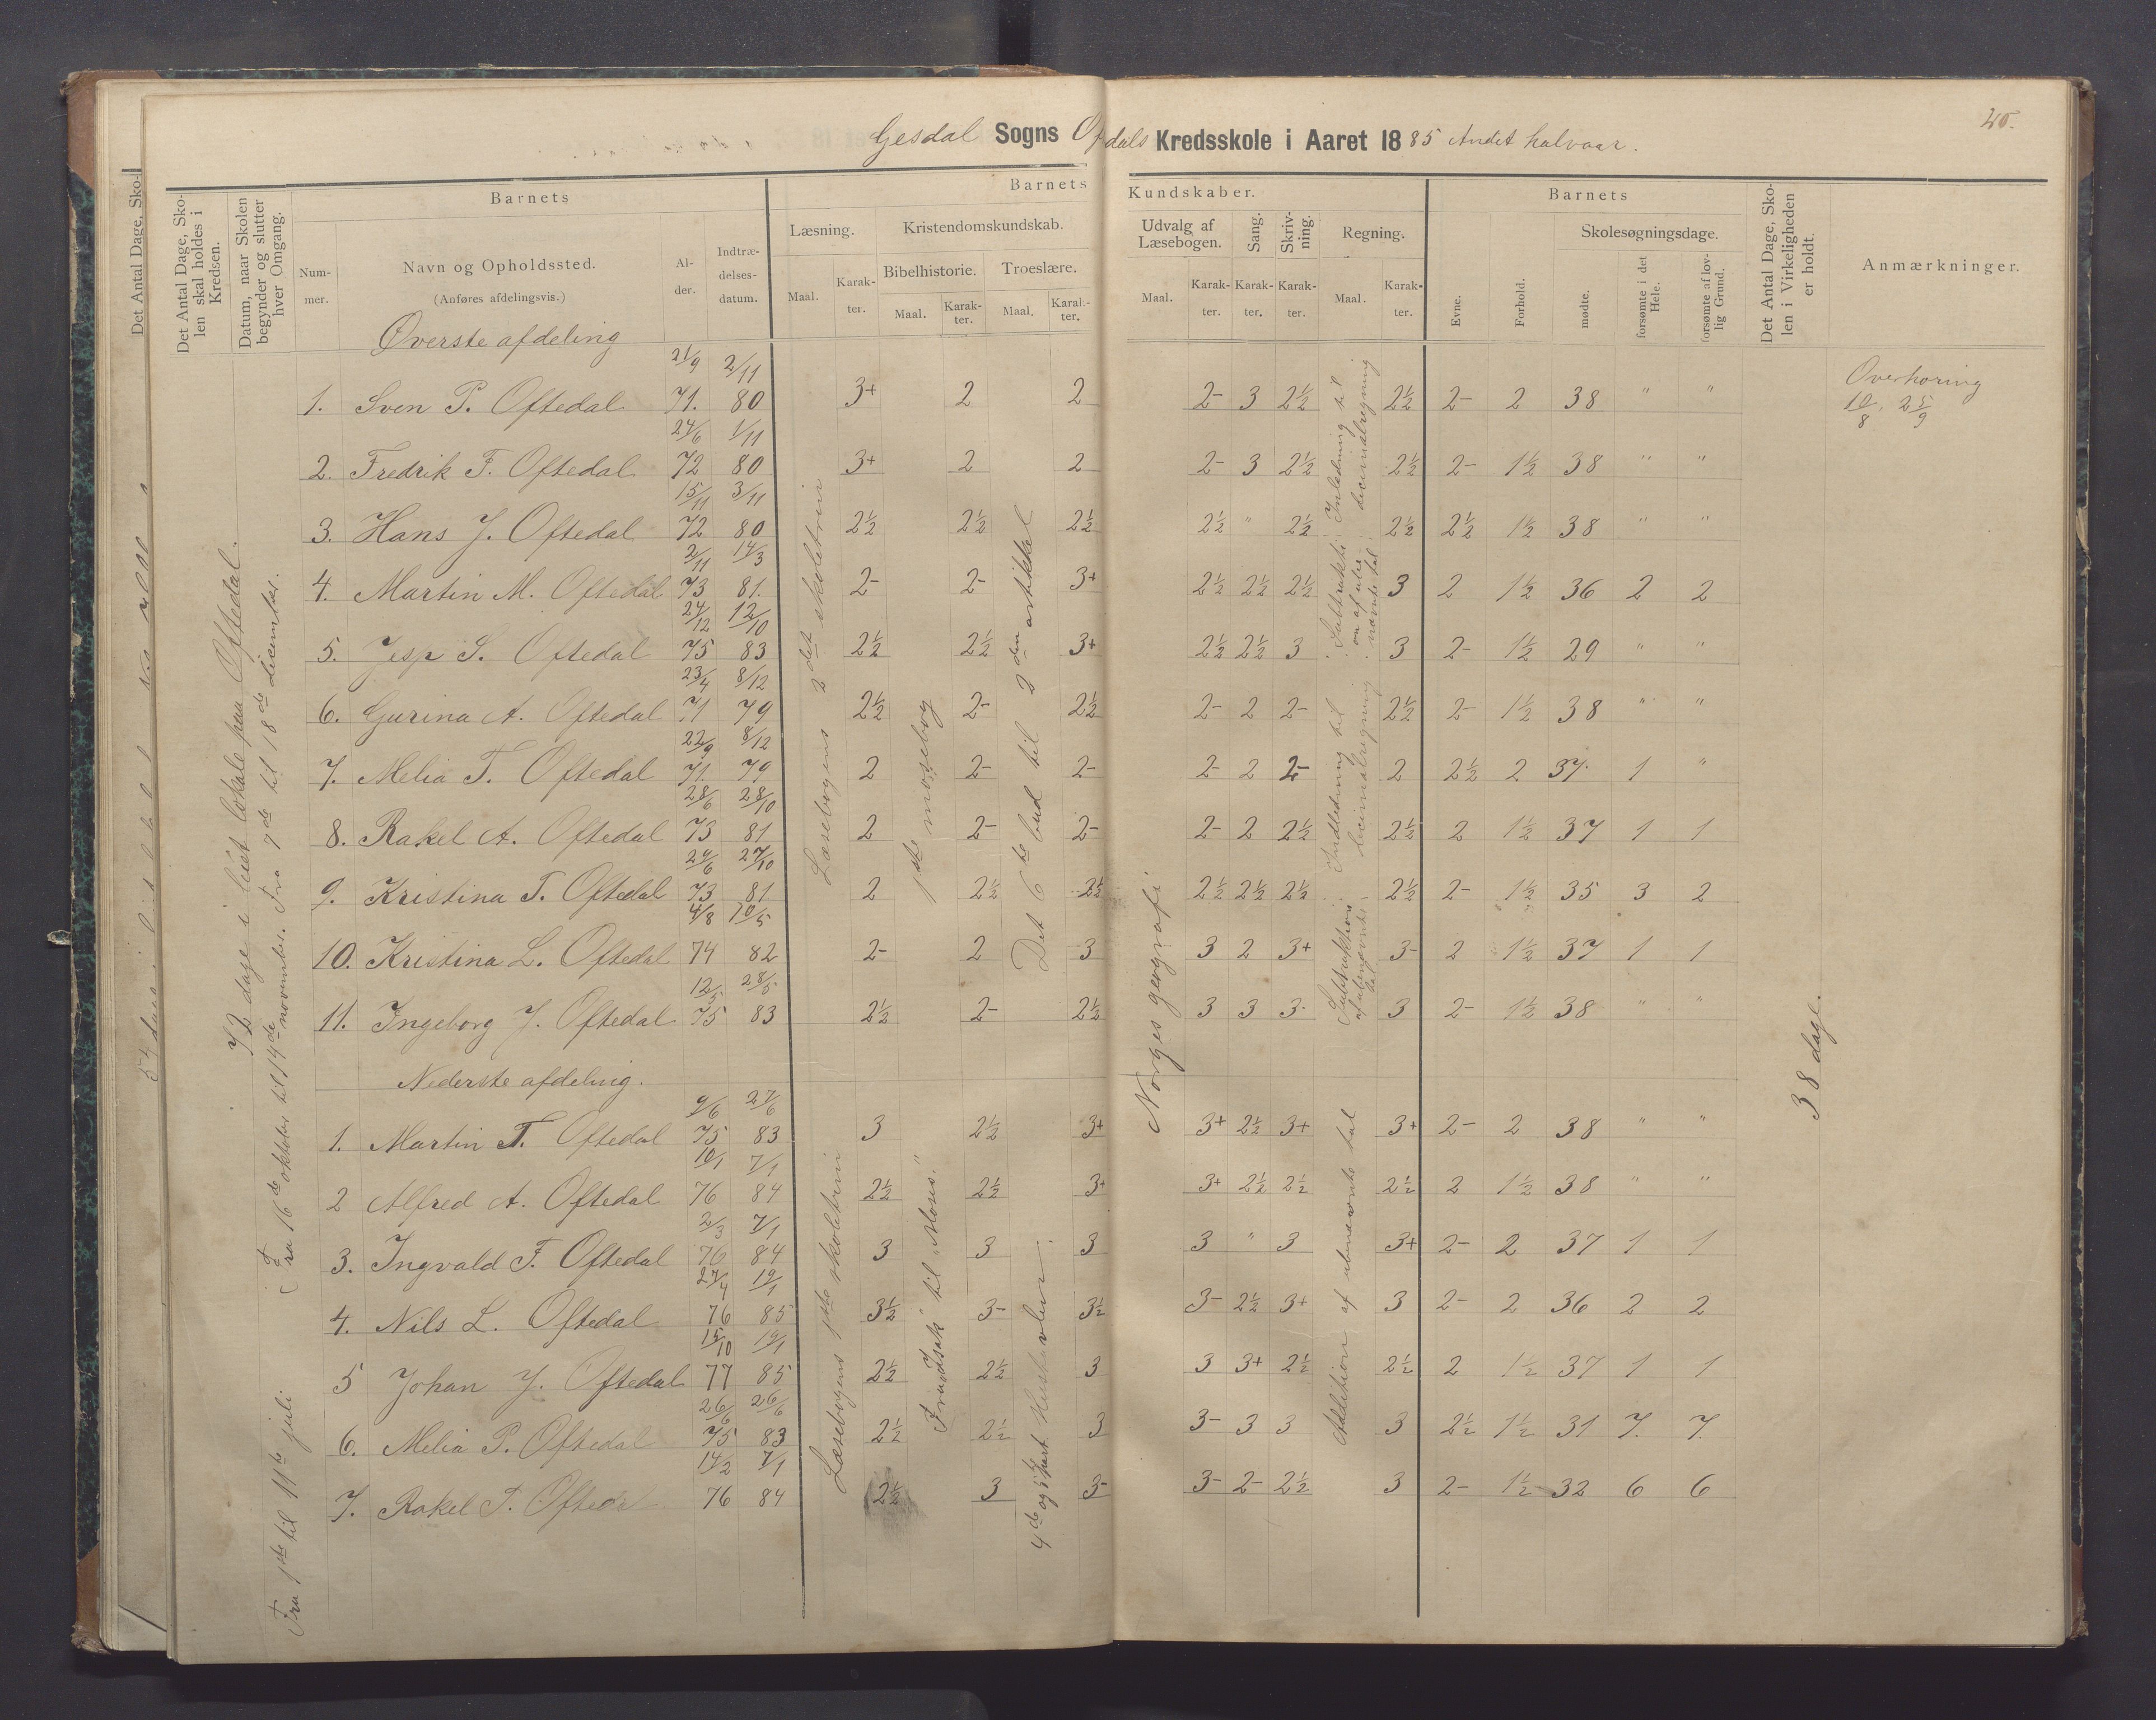 25.
Gesdal Sogns Ofdals Kredsskole i Aaret 1885 Andet halvaar.
Det Antal Dage, Sko-
Det Antal Dage, Sko-
len skal holdes i
Kredsen.
Datum, naar Skolen
begynder og slutter
hver Omgang.
Barnets
Num-
mer.
Navn og Opholdssted.
(Anføres afdelingsvis.)
Al-
der.
Indtræ-
delses-
datum.
Barnets Kundskaber.
Læsning.
Maal.
Karak-
ter.
Kristendomskundskab.
Bibelhistorie.
Maal.
Karak-
ter.
Troeslære.
Maal.
Karak-
ter.
Udvalg af
Læsebogen.
Maal.
Karak-
ter.
Sang.
Karak-
ter.
Skriv-
ning.
Karak-
ter.
Regning.
Maal.
Karak-
ter.
Barnets
Evne.
Forhold.
Skolesøgningsdage.
mødte.
forsømte i det
Hele.
forsømte af lov-
lig Grund.
Det Antal Dage, Sko-
len i Virkeligheden
er holdt.
Anmærkninger.
72 dage i leiet lokale paa Oftedal.
Fra 1ste til 11te juli
Fra 16de oktober til 14de november. Fra 7de til 18de december.
Øverste afdeling
1. Sven P. Oftedal 21/9 71. 2/11 80 3+ 2 2 2- 3 2½ 2½ 2- 2 38 " "
2. Fredrik F. Oftedal 24/6 72 1/11 80 3+ 2 2 2- 3 2½ 2½ 2- 1½ 38 " "
3. Hans J. Oftedal 15/11 72 3/11 80 2½ 2½ 2½ 2½ " 2½ 2½ 2½ 1½ 38 " "
4. Martin M. Oftedal 2/11 73 14/3 81. 2- 2- 3+ 2½ 2½ 2½ 3 2 1½ 36 2 2
5. Jesp S. Oftedal 24/12 75 12/10 83 2½ 2½ 3+ 2½ 2½ 3 3 2- 1½ 29 " "
6. Gurina A. Oftedal 23/4 71 8/12 79 2½ 2- 2½ 2- 2 2- 2½ 2- 1½ 38 " "
7. Melia T. Oftedal 22/9 71. 8/12 79 2 2- 2- 2- 2 2- 2 2½ 2 37 1 "
8. Rakel A. Oftedal 28/6 73 28/10 81 2 2- 2- 2- 2 2½ 2½ 2 1½ 37 1 1
9. Kristina T. Oftedal 24/6 73 27/10 81 2 2½ 2½ 2½ 2½ 2½ 2½ 2- 1½ 35 3 2
10. Kristina L. Oftedal 4/8 74 10/5 82 2- 2 3 3 2 3+ 3- 2 1½ 37 1 1
11. Ingeborg J. Oftedal 12/5 75 28/5 83 2½ 2- 2½ 3 3 3- 3 2- 1½ 38 " "
Læsebogens 2det skoletrin
1ste mosebog
Det 6te bud til 2den artikkel
Norges geografi
Overhøring
10/8, 25/9
38 dage.
Nederste afdeling.
1. Martin T. Oftedal 9/6 75 27/6 83 3 2½ 3+ 3+ 2½ 3+ 3+ 2- 2 38 " "
2 Alfred A. Oftedal 10/1 76 7/1 84 2½ 2½ 3+ 3+ 2½ 2½ 2½ 2 1½ 38 " "
3. Ingvald F. Oftedal 2/3 76 7/1 84 3 3 3 3 " 3 3+ 2- 2 37 1 1
4. Nils L. Oftedal 27/4 76 19/1 85 3½ 3- 3½ 3- 2½ 3+ 3 2- 2 36 2 2
5 Johan J. Oftedal 15/10 77 19/1 85 2½ 2½ 3 3 3+ 2½ 2½ 2 1½ 37 1 1
6. Melia P. Oftedal 26/6 75 26/6 83 2½ 2½ 3 3- 3 3 3 2½ 1½ 31 7. 7.
7. Rakel T. Oftedal 14/2 76 7/1 84 2½ 3 3- 3- 2- 2½ 3 2- 1½ 32 6 6
Læsebogens 1ste skoletrin
Fra „Isak" til „Moses."
4de og 5te part Hustavlen.
Addition af ubenævnte tal